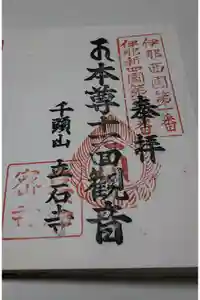 伊那西国第一番
伊那新四国第 番
奉拝
本尊十一面観音
千頭山 立石寺